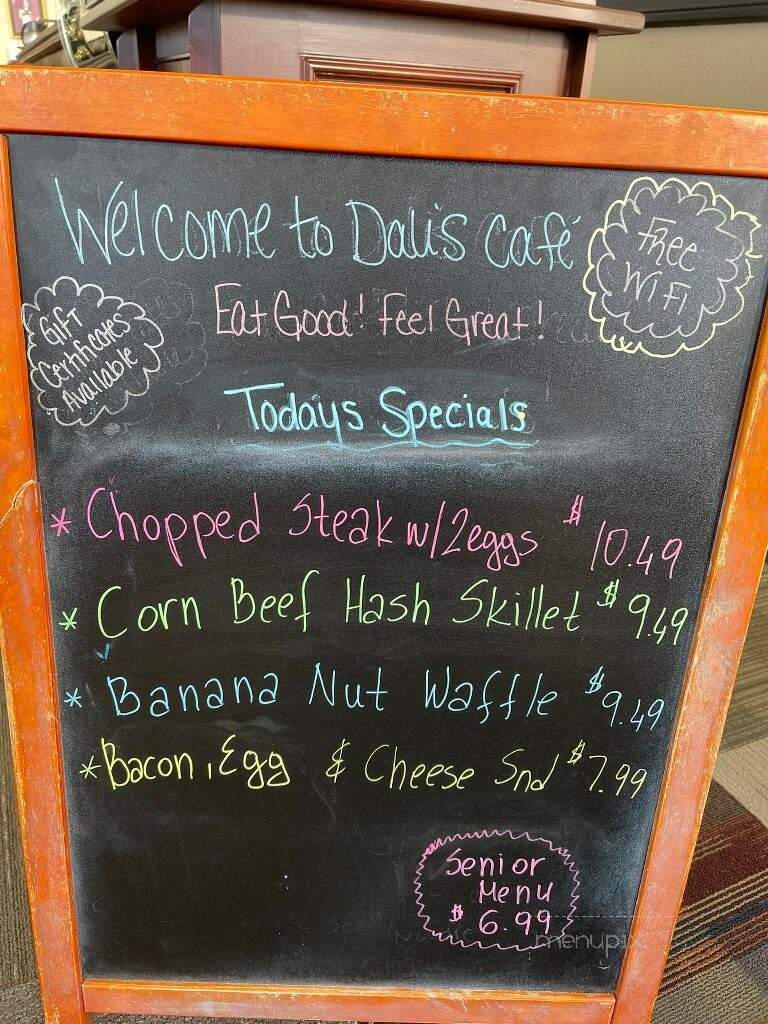 Welcome to Dali's Café
Free
WiFi
Eat Good! Feel Great!
Gift
Certificates
Available
Todays Specials
* Chopped Steak w/2eggs $10.49
* Corn Beef Hash Skillet $9.49
* Banana Nut Waffle $9.49
* Bacon, Egg & Cheese Snd $7.99
Senior
Menu
$6.99
menupix